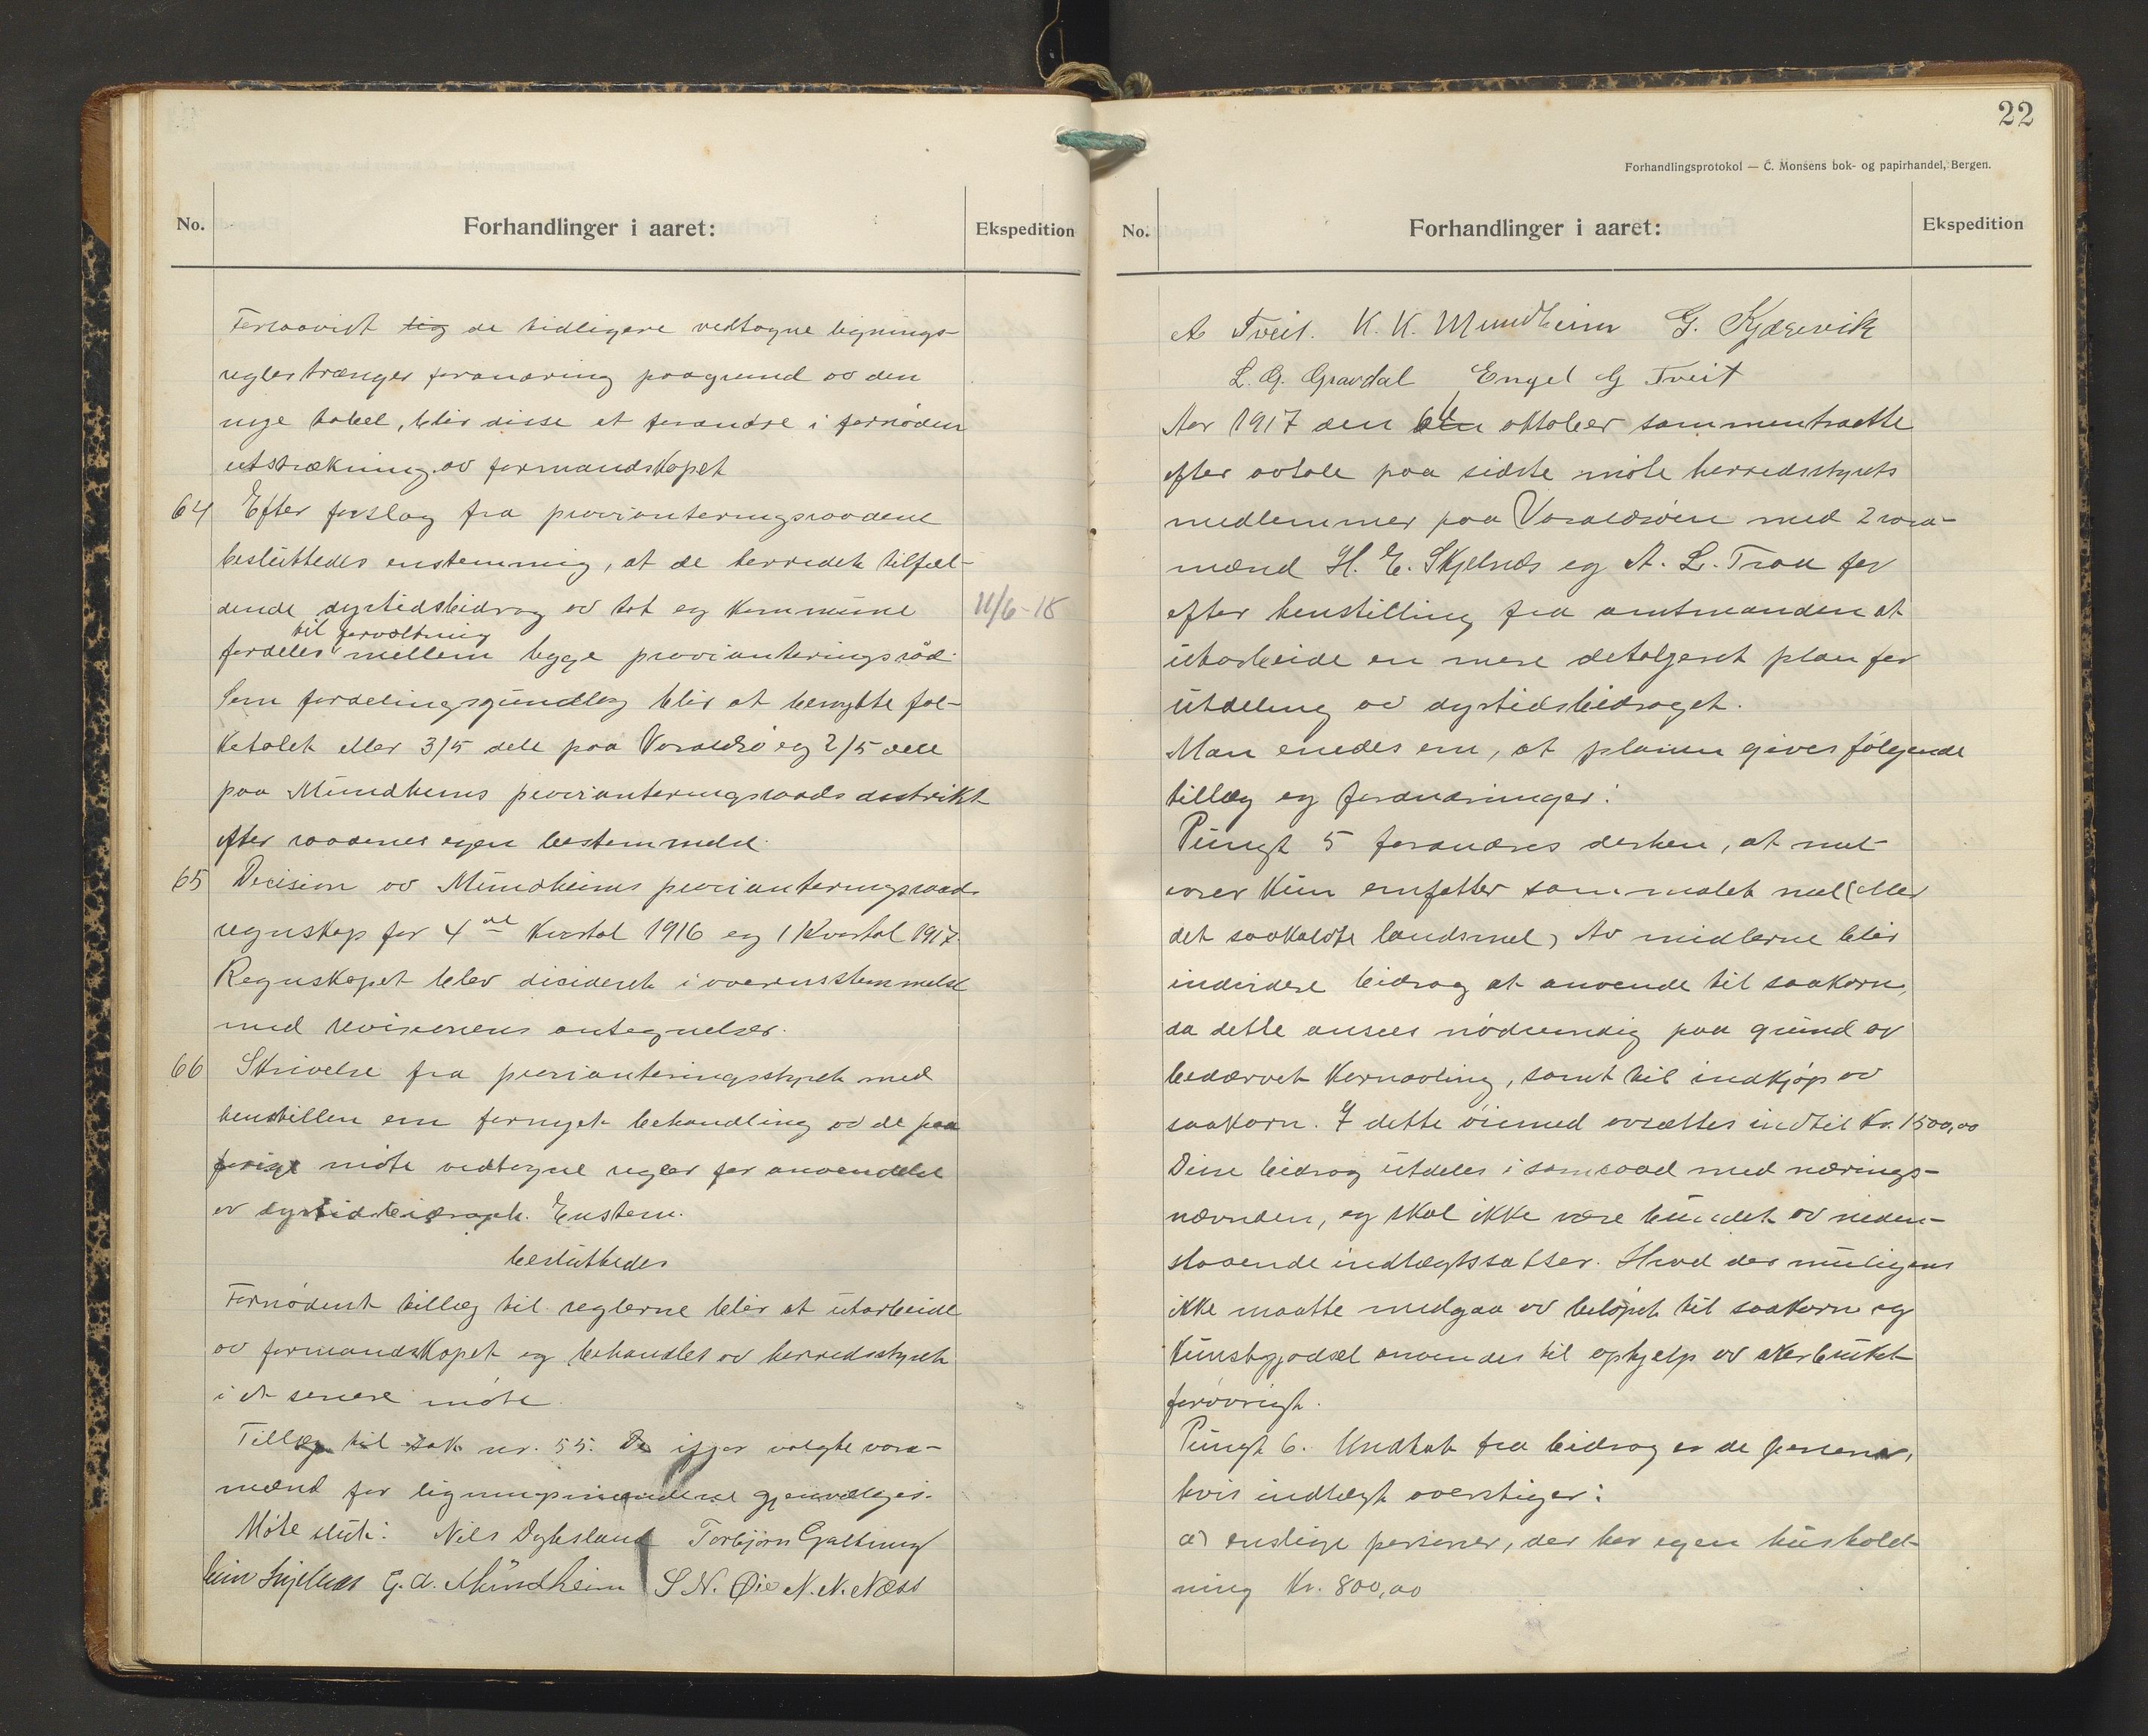 No.
Forhandlinger i aaret:
Ekspedition
Forsaavidt tig de tidligere vedtagne lignings-
regler trænger forandring paagrund av den
nye tabel, blir disse at forandre i fornøden
utstrækning av formandskapet
64 Efter forslag fra provianteringsraadene
besluttedes enstemmig, at de herredet tilfal-
dende dyrtidsbidrag av stat og kommune 11/6-18
til forvaltning
fordeles mellem begge provianteringsråd.
Som fordelingsgrundlag blir at benytte fol-
ketalet eller 3/5 dele paa Varaldsø og 2/5 dele
paa Mundheims provianteringsraads distrikt
efter raadenes egen bestemmelse.
65 Decision av Mundheims provianteringsraads
regnskap for 4de kvartal 1916 og 1 kvartal 1917.
Regnskapet blev decideret i overensstemmelse
med revisionens antegnelser.
66 Skrivelse fra provianteringsstyret med
henstillen om fornyet behandling av de paa
forige møte vedtagne regler for anvendelse
av dyrtidsbidraget. Enstem.
besluttedes
Fornødent tillæg til reglerne blir at utarbeide
av formandskapet og behandles av herredsstyret
i et senere møte.
Tillæg til sak nr. 55. De ifjor valgte vara-
mænd for ligningsmændene gjenvælges.
Møte slut: Nils Dyhesland Torbjørn Galtung
G. A. Mundheim S N. Øie N. N. Næss
22
Forhandlingsprotokol — C. Monsens bok- og papirhandel, Bergen.
No.
Forhandlinger i aaret:
Ekspedition
A Tveit. K. K. Mundheim G. Kjærevik
L. G. Gravdal Engel G Tveit
Aar 1917 den 6te oktober sammentraatte
efter avtale paa sidste møte herredsstyrets
medlemmer paa Varaldsøen med 2 vara-
mænd H. E. Skjelnes og A. L. Traa for
efter henstilling fra amtmanden at
utarbeide en mere detaljeret plan for
utdeling av dyrtidsbidraget.
Man enedes om, at planen gives følgende
tillæg og forandringer:
Pungt 5 forandres derhen, at mel-
varer kun omfatter sammalet mel (eller
det saakaldte landsmel) Av midlerne blir
endvidere bidrag at anvende til saakorn,
da dette ansees nødvendig paa grund av
bedærvet kornavling, samt til indkjøp av
saakorn. I dette øiemed avsættes indtil kr. 1500,00
Disse bidrag utdeles i samraad med nærings-
nævnden, og skal ikke være bundet av neden-
staaende indtægtssatser. Hvad der muligens
ikke maatte medgaa av beløpet til saakorn og
kunstgjødsel anvendes til ophjelp av akerbruket
forøvrigt.
Pungt 6. Undtat fra bidrag er de personer,
hvis indtægt overstiger:
a) enslige personer, der har egen hushold-
ning kr. 800,00